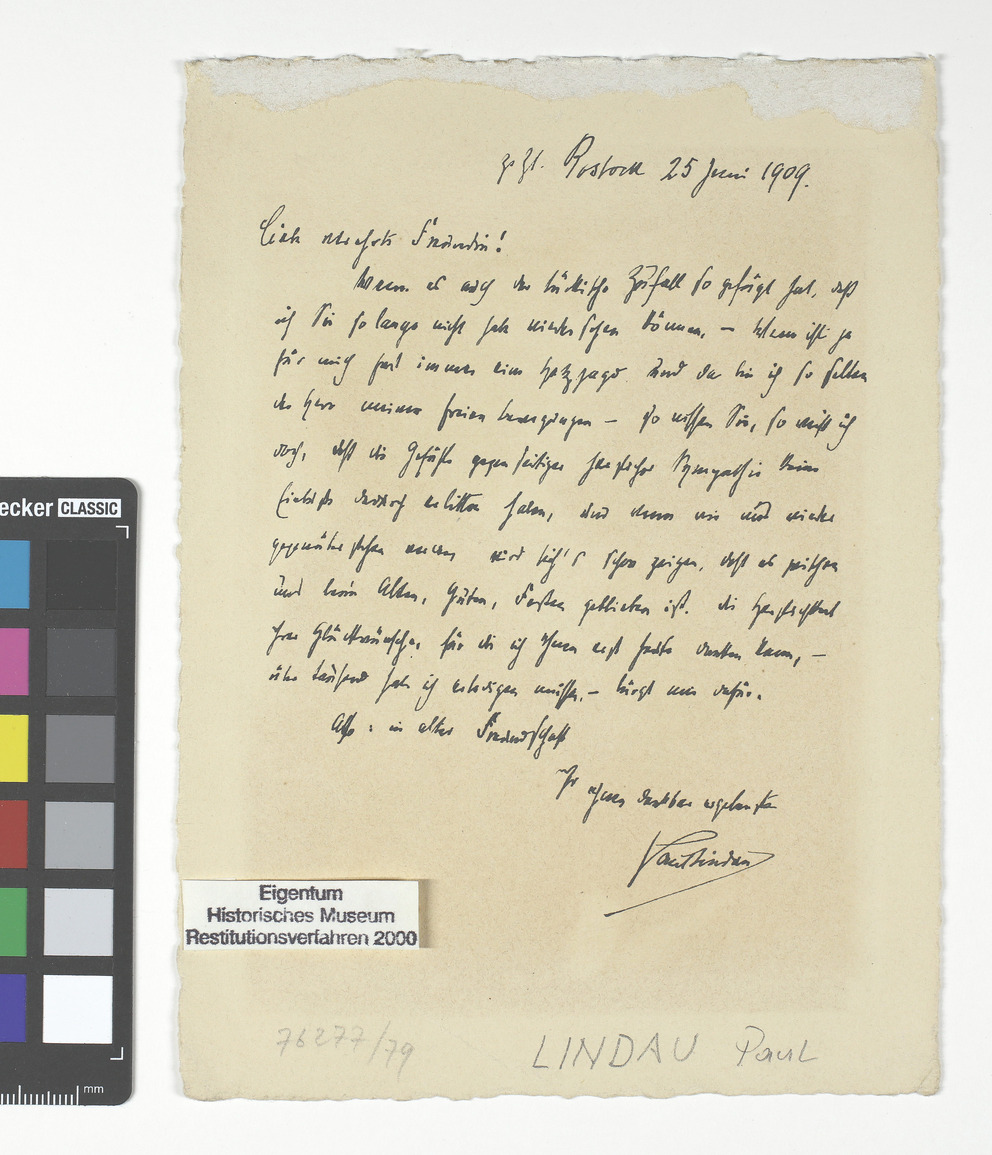 z. Zt. Rostock 25 Juni 1909.
Liebe verehrte Freundin!
Wenn es auch der tückische Zufall so gefügt hat, daß
ich Sie so lange nicht habe wiedersehen können, – Wien ist ja
für mich fast immer eine Hetzjagd und da bin ich so selten
der Herr meiner freien Bewegungen – so wissen Sie, so weiß ich
doch, daß die Gefühle gegenseitiger herzlicher Sympathie keine
Einbuße dadurch erlitten haben, und wenn wir uns wieder
gegenüber stehen werden wird sich's schon zeigen, daß es zwischen
uns beim Alten, Guten, Festen geblieben ist. Die Herzlichkeit
Ihrer Glückwünsche, für die ich Ihnen erst heute danken kann, –
über tausend habe ich erledigen müssen, – bürgt mir dafür.
Also: in alter Freundschaft
Ihr Ihnen dankbar ergebenster
Paul Lindau
Eigentum
Historisches Museum
Restitutionsverfahren 2000
76277/79
LINDAU Paul
ecker CLASSIC
mm